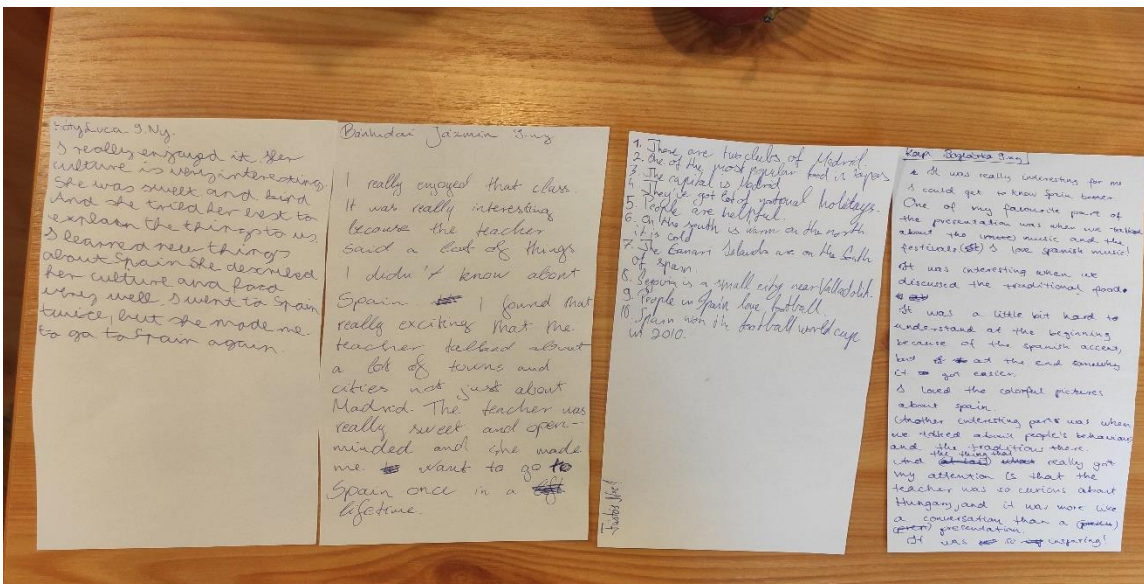 Luca 9.Ny.
I really enjoyed it. Her
culture is very interesting.
She was sweet and kind.
And she tried her best to
explain the things to us.
I learned new things
about Spain. She described
her culture and food
very well. I went to Spain
twice, but she made me
to go to Spain again.
Bánhidai Jázmin 9.ny
I really enjoyed that class.
It was really interesting
because the teacher
said a lot of things
I didn't know about
Spain. I found that
really exciting that the
teacher talked about
a lot of towns and
cities not just about
Madrid. The teacher was
really sweet and open-
minded and she made
me want to go to
Spain once in a
lifetime.
1. There are two clubs of Madrid.
2. One of the most popular food is tapas
3. The capital is Madrid
4. They've got lot of national holidays.
5. People are helpful.
6. On the south is warm on the north
it is cold
7. The Canari Islands are on the South
of Spain.
8. Segovia is a small city near Valladolid.
9. People in Spain love football.
10. Spain won the football world cup
in 2010.
9.ny
It was really interesting for me
I could get to know Spain better.
One of my favourite part of
the presentation was when we talked
about the music and the
festivals. I love spanish music!
It was interesting when we
discussed the traditional food.
It was a little bit hard to
understand at the beginning
because of the spanish accent,
but at the end somehow
it got easier.
I loved the colorful pictures
about spain.
Another interesting part was when
we talked about people's behaviour
and the traditions there.
And the thing that really got
my attention is that the
teacher was so curious about
Hungary, and it was more like
a conversation than a
presentation.
It was so inspiring!